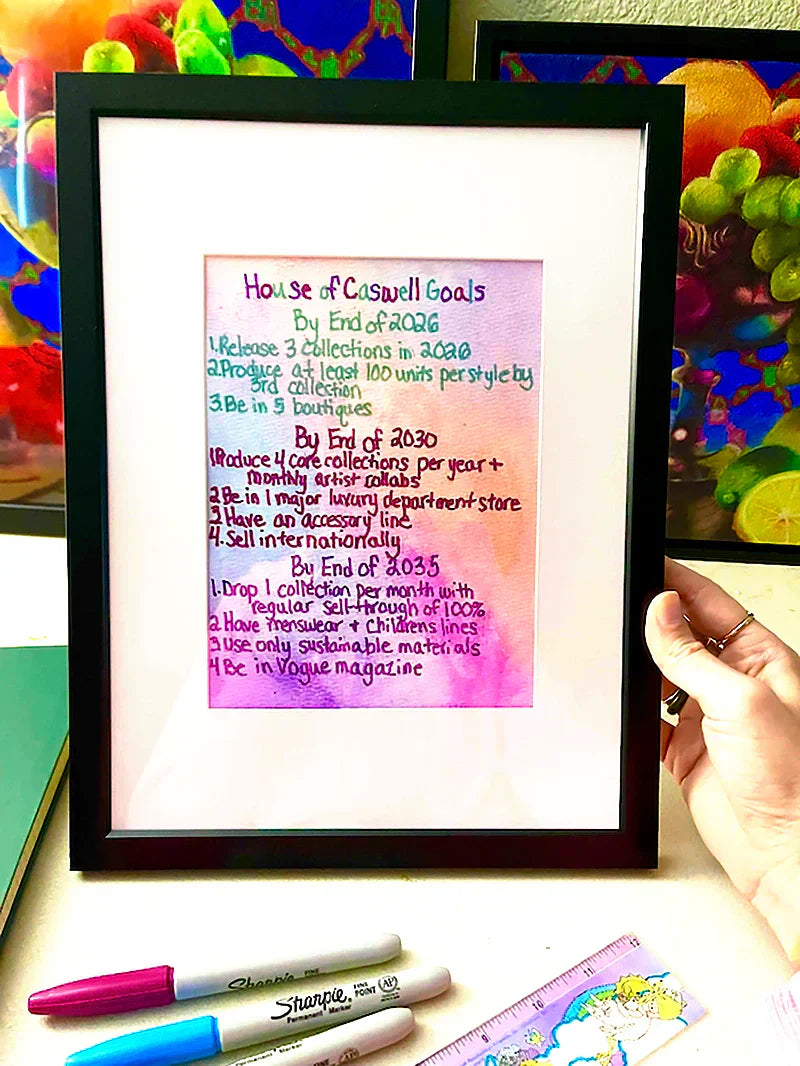 House of Caswell Goals
By End of 2026
1.Release 3 collections in 2026
2.Produce at least 100 units per style by
3rd collection
3.Be in 5 boutiques
By End of 2030
1.Produce 4 core collections per year +
monthly artist collabs
2.Be in 1 major luxury department store
3 Have an accessory line
4.Sell internationally
By End of 2035
1.Drop 1 collection per month with
regular sell-through of 100%
2 Have menswear + Childrens lines
3 Use only sustainable materials
4 Be in Vogue magazine
Sharpie. FINE
Sharpie. FINE POINT AP
Permanent Marker
Permanent Marker AP
9 10 11 12